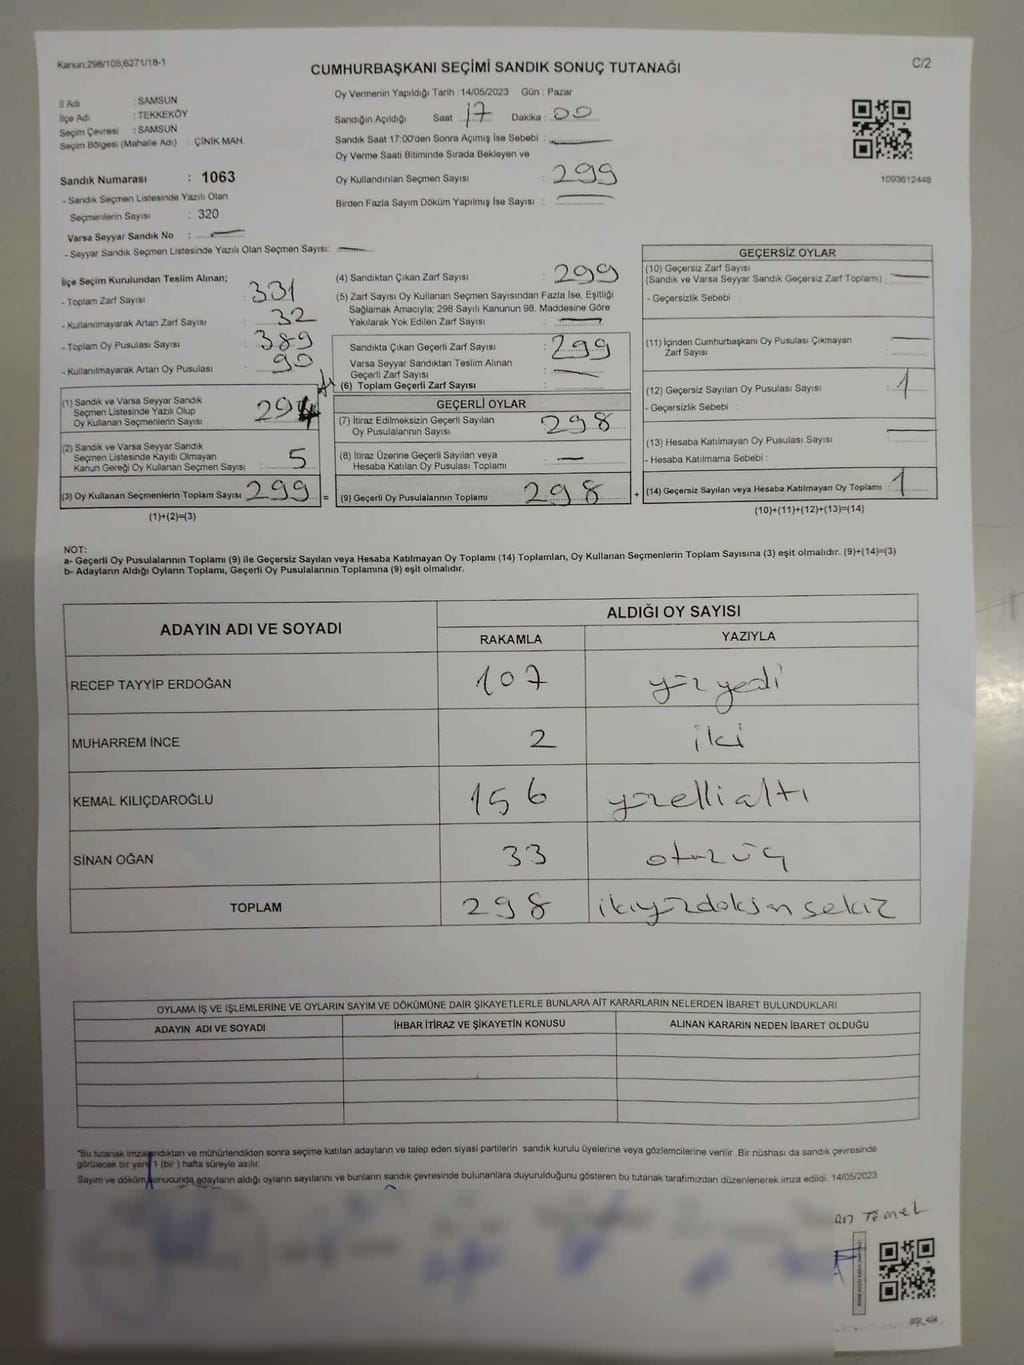 Kanun;298/105;6271/18-1
CUMHURBAŞKANI SEÇİMİ SANDIK SONUÇ TUTANAĞI
C/2
İl Adı : SAMSUN
İlçe Adı : TEKKEKÖY
Seçim Çevresi : SAMSUN
Seçim Bölgesi (Mahalle Adı) : ÇİNİK MAH.
Sandık Numarası : 1063
- Sandık Seçmen Listesinde Yazılı Olan
Seçmenlerin Sayısı : 320
Varsa Seyyar Sandık No :
- Seyyar Sandık Seçmen Listesinde Yazılı Olan Seçmen Sayısı:
Oy Vermenin Yapıldığı Tarih : 14/05/2023 Gün : Pazar
Sandığın Açıldığı Saat : 17 Dakika : 00
Sandık Saat 17:00'den Sonra Açımış İse Sebebi :
Oy Verme Saati Bitiminde Sırada Bekleyen ve
Oy Kullandırılan Seçmen Sayısı : 299
Birden Fazla Sayım Döküm Yapılmış İse Sayısı :
1093612448
İlçe Seçim Kurulundan Teslim Alınan;
- Toplam Zarf Sayısı : 331
- Kullanılmayarak Artan Zarf Sayısı : 32
- Toplam Oy Pusulası Sayısı : 389
- Kullanılmayarak Artan Oy Pusulası : 90
(1) Sandık ve Varsa Seyyar Sandık
Seçmen Listesinde Yazılı Olup
Oy Kullanan Seçmenlerin Sayısı : 294
(2) Sandık ve Varsa Seyyar Sandık
Seçmen Listesinde Kayıtlı Olmayan
Kanun Gereği Oy Kullanan Seçmen Sayısı : 5
(3) Oy Kullanan Seçmenlerin Toplam Sayısı : 299 =
(1)+(2)=(3)
(4) Sandıktan Çıkan Zarf Sayısı : 299
(5) Zarf Sayısı Oy Kullanan Seçmen Sayısından Fazla İse, Eşitliği
Sağlamak Amacıyla; 298 Sayılı Kanunun 98. Maddesine Göre
Yakılarak Yok Edilen Zarf Sayısı :
Sandıkta Çıkan Geçerli Zarf Sayısı : 299
Varsa Seyyar Sandıktan Teslim Alınan
Geçerli Zarf Sayısı :
(6) Toplam Geçerli Zarf Sayısı :
GEÇERLİ OYLAR
(7) İtiraz Edilmeksizin Geçerli Sayılan
Oy Pusulalarının Sayısı : 298
(8) İtiraz Üzerine Geçerli Sayılan veya
Hesaba Katılan Oy Pusulası Toplamı :
(9) Geçerli Oy Pusulalarının Toplamı : 298 +
GEÇERSİZ OYLAR
(10) Geçersiz Zarf Sayısı
(Sandık ve Varsa Seyyar Sandık Geçersiz Zarf Toplamı) :
- Geçersizlik Sebebi :
(11) İçinden Cumhurbaşkanı Oy Pusulası Çıkmayan
Zarf Sayısı :
(12) Geçersiz Sayılan Oy Pusulası Sayısı : 1
- Geçersizlik Sebebi :
(13) Hesaba Katılmayan Oy Pusulası Sayısı :
- Hesaba Katılmama Sebebi :
(14) Geçersiz Sayılan veya Hesaba Katılmayan Oy Toplamı : 1
(10)+(11)+(12)+(13)=(14)
NOT:
a- Geçerli Oy Pusulalarının Toplamı (9) ile Geçersiz Sayılan veya Hesaba Katılmayan Oy Toplamı (14) Toplamları, Oy Kullanan Seçmenlerin Toplam Sayısına (3) eşit olmalıdır. (9)+(14)=(3)
b- Adayların Aldığı Oyların Toplamı, Geçerli Oy Pusulalarının Toplamına (9) eşit olmalıdır.
ADAYIN ADI VE SOYADI
ALDIĞI OY SAYISI
RAKAMLA YAZIYLA
RECEP TAYYİP ERDOĞAN 107 yüz yedi
MUHARREM İNCE 2 iki
KEMAL KILIÇDAROĞLU 156 yüzelli altı
SİNAN OĞAN 33 otuz üç
TOPLAM 298 ikiyüzdoksan sekiz
OYLAMA İŞ VE İŞLEMLERİNE VE OYLARIN SAYIM VE DÖKÜMÜNE DAİR ŞİKAYETLERLE BUNLARA AİT KARARLARIN NELERDEN İBARET BULUNDUKLARI
ADAYIN ADI VE SOYADI İHBAR İTİRAZ VE ŞİKAYETİN KONUSU ALINAN KARARIN NEDEN İBARET OLDUĞU
"Bu tutanak imzalandıktan ve mühürlendikten sonra seçime katılan adayların ve talep eden siyasi partilerin sandık kurulu üyelerine veya gözlemcilerine verilir .Bir nüshası da sandık çevresinde
görülecek bir yere 1 (bir ) hafta süreyle asılır.
Sayım ve döküm sonucunda adayların aldığı oyların sayılarını ve bunların sandık çevresinde bulunanlara duyurulduğunu gösteren bu tutanak tarafımızdan düzenlenerek imza edildi. 14/05/2023
an TEMEL